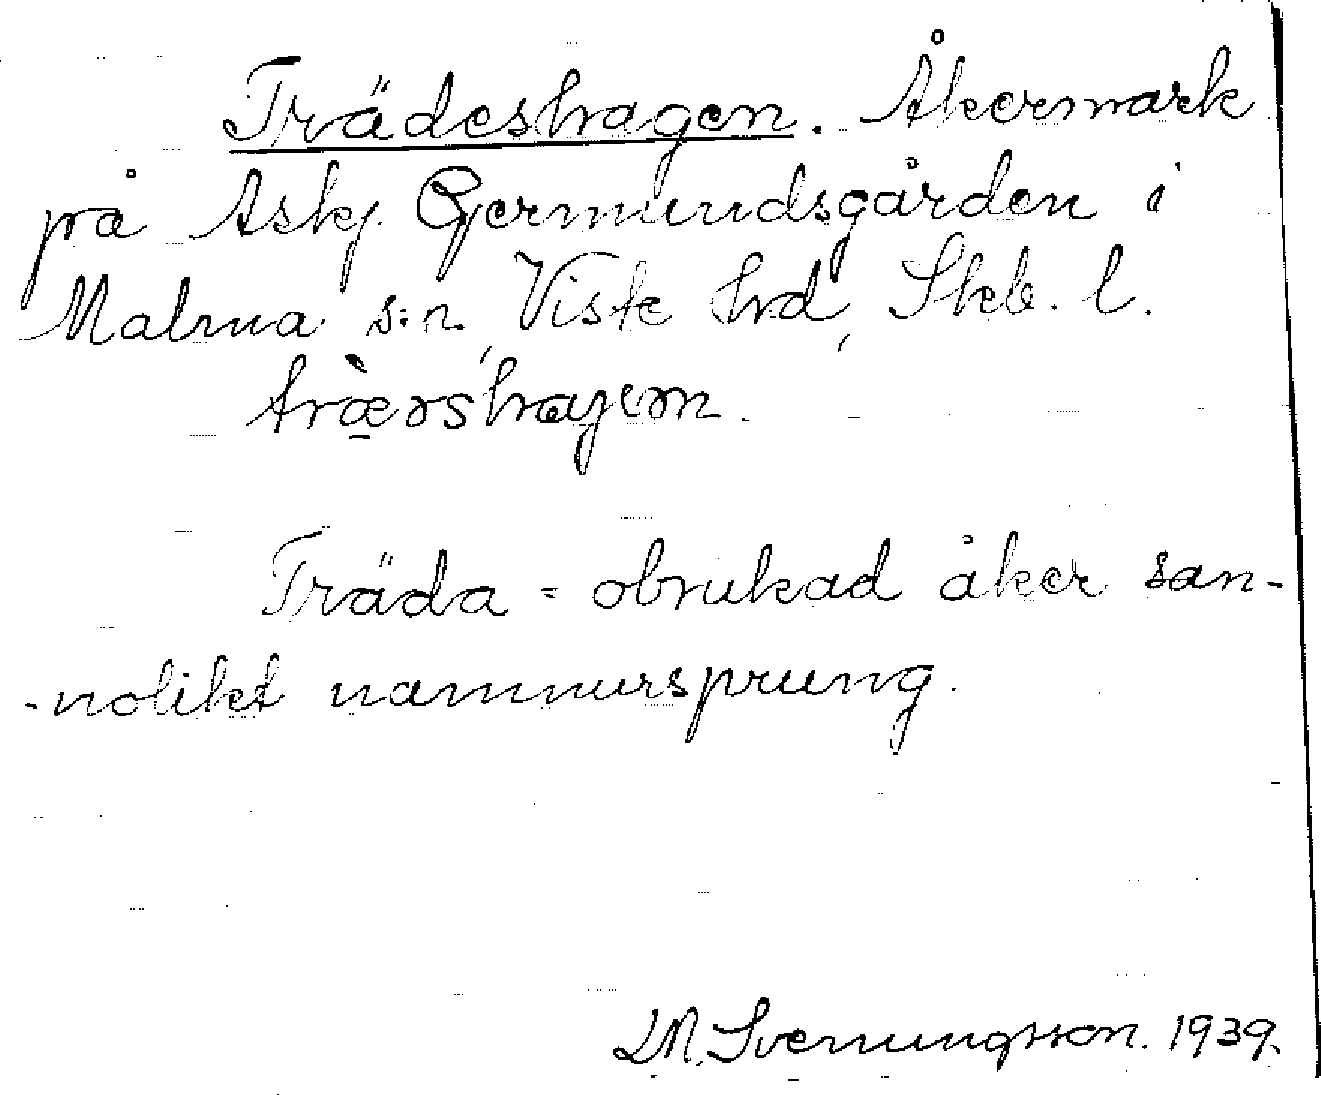 Trädeshagen. Åkermark
på Askj. Gjermundsgården i
Malma s:n, Viste hrd, Skb. l.
trӕ̀ərshaɡəm.
Träda = obrukad åker san-
-nolikt namnursprung.
M. Svenungsson. 1939.